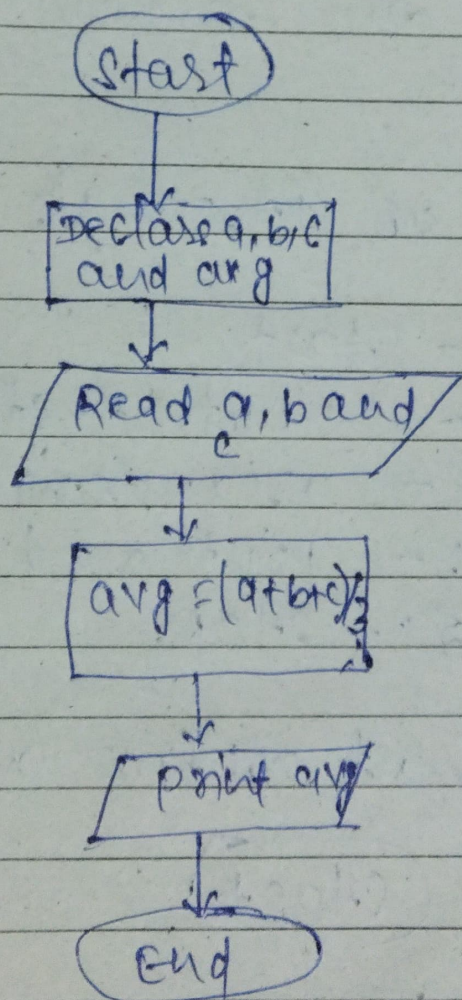 Start
Declare a, b, c
and avg
Read a, b and
c
avg = (a+b+c)/3
print avg
End